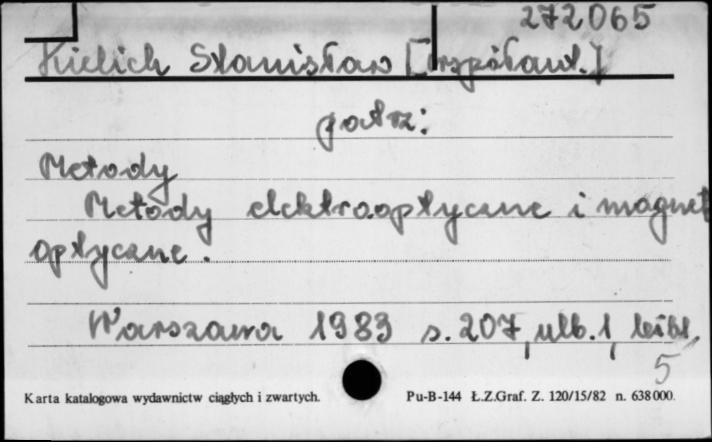 272065
Kielich Stanisław [współaut.]
patrz:
Metody
Metody elektrooptyczne i magnet
optyczne.
Warszawa 1983 s. 207, ulb. 1, bibl.
5
Karta katalogowa wydawnictw ciągłych i zwartych. Pu-B-144 Ł.Z.Graf. Z. 120/15/82 n. 638000.